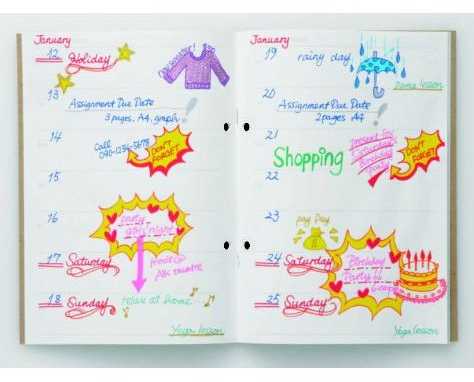 January
12 Holiday
13
Assignment Due Date
3 pages. A4, graph
14
Call
090-1234-5678
DON'T
FORGET
15
16
party
girls' night
17 Saturday
movie @
ABC theatre
18 Sunday
relax at home...
Yoga lesson
January
19 rainy day
20
Assignment Due Date
2 pages A4
21
Shopping
present for
Birthday
party
DON'T
FORGET
22
23
pay Day
24 Saturday
Birthday
Party
25 Sunday
Yoga lesson